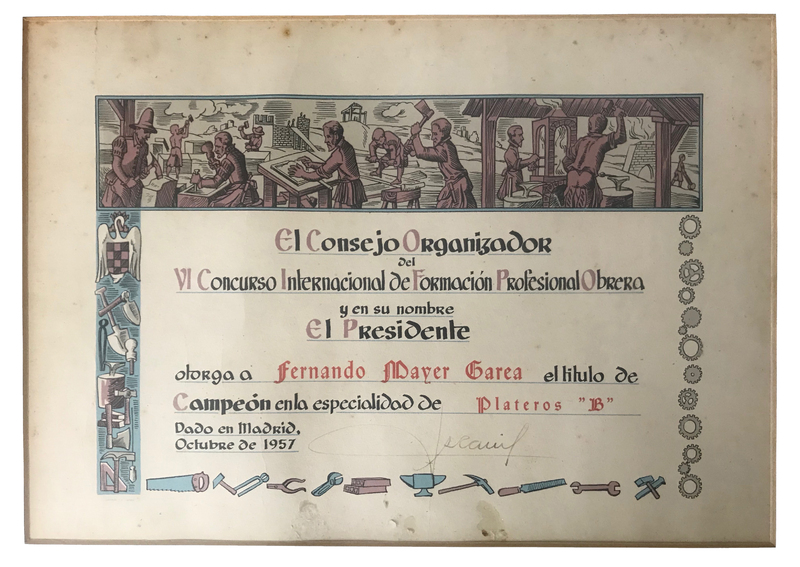 El Consejo Organizador
del
VI Concurso Internacional de Formación Profesional Obrera
y en su nombre
El Presidente
otorga a Fernando Mayer Garea el titulo de
Campeón en la especialidad de Plateros "B"
Dado en Madrid,
Octubre de 1957